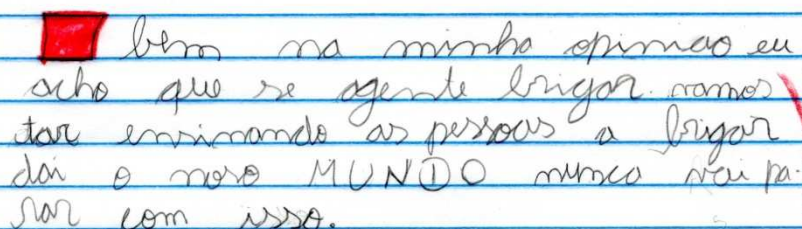 bem na minha opinião eu
acho que se agente brigar vamos
tar ensinando as pessoas a brigar
dai o noso MUNDO nunca vai pa-
rar com isso.